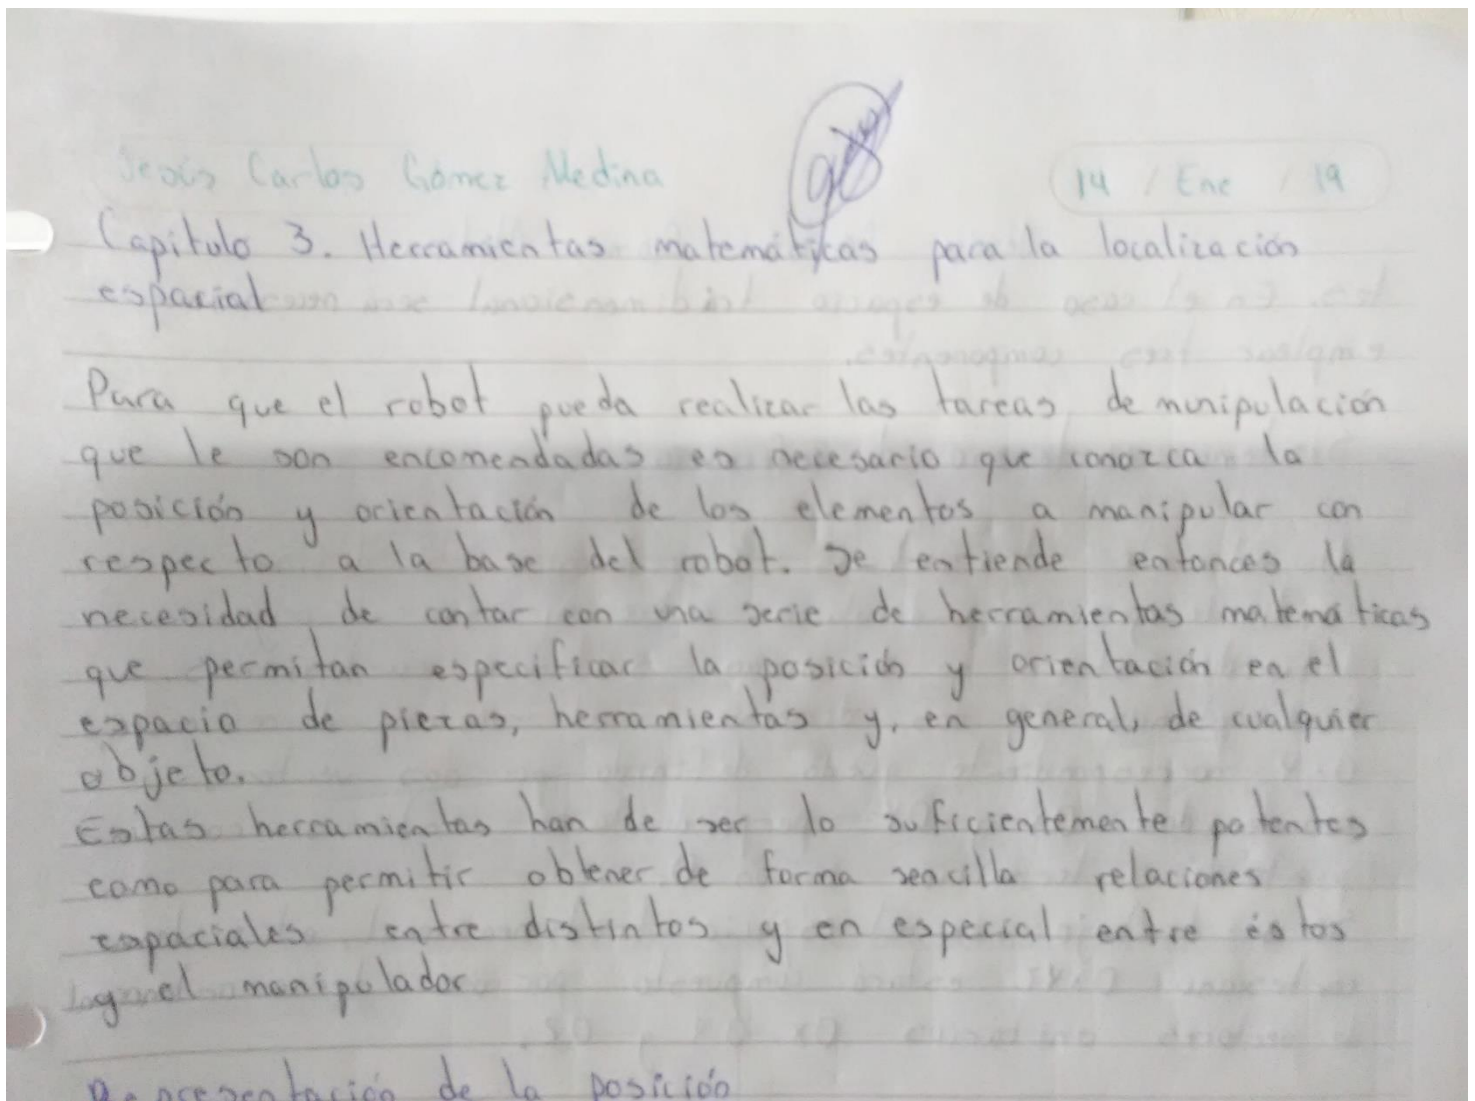 Jesús Carlos Gómez Medina
14 / Ene / 19
Capítulo 3. Herramientas matemáticas para la localización
espacial
Para que el robot pueda realizar las tareas de munipulación
que le son encomendadas es necesario que conozca la
posición y orientación de los elementos a manipular con
respecto a la base del robot. Se entiende entonces la
necesidad de contar con una serie de herramientas matemáticas
que permitan especificar la posición y orientación en el
espacio de piezas, herramientas y, en general, de cualquier
objeto.
Estas herramientas han de ser lo suficientemente potentes
como para permitir obtener de forma sencilla relaciones
espaciales entre distintos y en especial entre éstos
y el manipulador
Representación de la posición